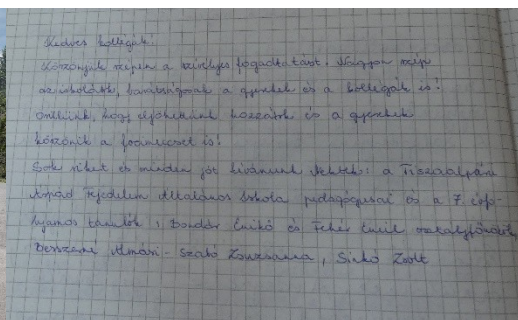 Kedves kollégák!
Köszönjük szépen a szívélyes fogadtatást. Nagyon szép
az iskolátok, barátságosak a gyerekek és a kollégák is!
Örülünk, hogy eljöhettünk hozzátok és a gyerekek
köszönik a focimeccset is!
Sok sikert és minden jót kívánunk Nektek: a Tiszaalpári
Árpád Fejedelem Általános Iskola pedagógusai és a 7. évfo-
lyamos tanulók, Bondár Enikő és Fehér Emil osztályfőnökök
Almási-Szabó Zsuzsanna, Sinkó Zsolt